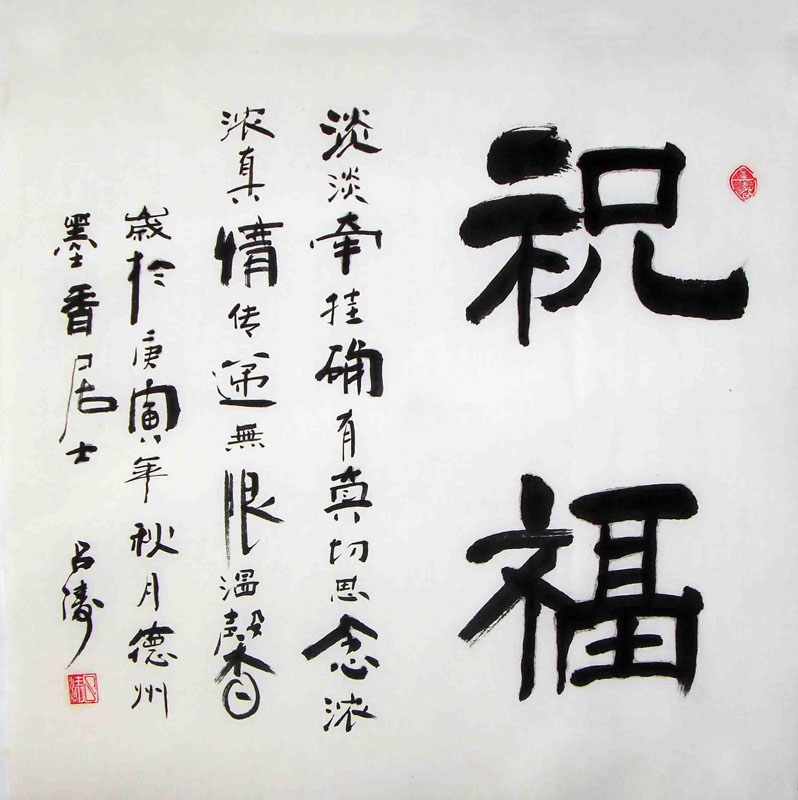 祝福
淡淡牵挂确有真切思念浓
浓真情传递無限温馨
歲於庚寅年秋月德州
墨香居士 吕涛